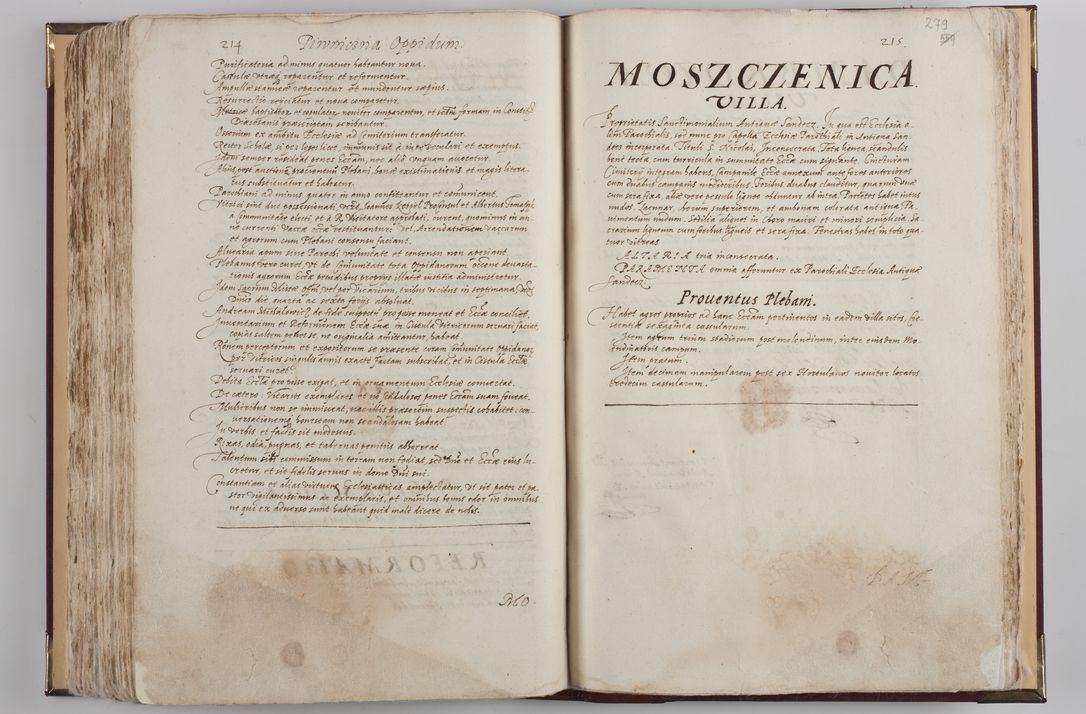 214 Piwniczna Oppidum.
Purificatoria ad minus quatuor habeantur noua.
Casulæ utraq reparentur et reformentur.
Ampullæ stanneæ reparentur et mundentur sæpius.
Resurrectio reijciatur et noua comparetur.
Metricæ baptisatorum et copulatorum nouiter comparentur, et iuxta formam in Constit.
Diœcesanis præscriptam scribantur.
Ossorium ex ambitu Ecclesiæ ad Cemiterium transferatur.
Rector Scholæ, si per leges licet, immunis sit à iure seculari et exemptus.
Idem semper resideat penes Eccam, nec alio unquam auocetur.
Alius, post auctionem prouentuum Plebani, bonæ existimationis et magis litera-
tus substituatur et habeatur.
Parochiani ad minus quater in anno confiteantur et communicent.
Vitrici sint duo possessionati, ut Joannes Proconsul et Albertus
à Communitate electi, et à R. Visitatore approbati, curent, quominus in an-
no currenti Vaccæ Eccæ restituantur: vel Arrendationem vaccarum
et agrorum cum Plebani consensu faciant.
Aluearia apum sine Parochi voluntate et consensu non aperiant.
Plebanus vero curet, ut de Cōmunitate tota Oppidanorum occone deuasta-
tionis agrorum Eccæ pecudibus proprijs illatæ iustitia administretur.
Idem Sacrum Missæ offm vel per Vicarium, tribus vicibus in septimana,
Dmco die, quarta ac sexta ferijs absoluat.
Andream Michalowicz de fide suspectum pro posse moneat et Eccæ conciliet.
Inuentarium et Reformationem Eccæ suæ in Cistula Vitricorum seruari faciat,
copias saltem penes se, ne originalia amittantur, habeat.
Rōnem perceptorum et expositorum se præsente coram cōmunitate Oppidanor
per Vitricos singulis annis exacte factam subscribat, et in Cistula Eccæ
seruari curet.
Debita Eccæ pro posse exigat, et in ornamentum Ecclesiæ conuertat.
De cætero: Vicarios exemplares et nō scādalosos penes Eccam suam foueat.
Mulieribus non se immisceat, nec illis præsertim suspectis cohabitet: con-
uersationemq honestam non scandalosam habeat.
In verbis et factis sit modestus.
Rixas, odia, pugnas, et tabernas penitus abhorreat.
Talentum sibi commissum in terram non fodiat, sed Dno et Eccæ eius lu-
cretur, et sit fidelis seruus in domo Dni sui.
Constantiam et alias virtutes Ecclesiasticas amplectatur, ut sit pater et pa-
stor vigilantissimus ac exemplaris, et omnibus bonus odor in omnibus
ne qui ex aduerso sunt habeant quid male dicere de nobis.
REFORMATIO
279
215.
MOSZCZENICA.
VILLA.
Proprietatis Sanctimonialium Antiquæ Sandecz. In qua est Ecclesia o-
lim Parochialis, sed nunc pro Capella Ecclesiæ Parochiali in Antiqua San-
decz incorporata. Tituli S. Nicolai, Inconsecrata. Tota lignea, scandulis
bene tecta, cum turricula in summitate Eccæ cum signante. Cincturam
Cimiterij integram habens, Campanile Eccæ annexum ante fores anteriores
cum duabus campanis mediocribus. Foribus duabus clauditur, quarum unæ
cum sera fixa, aliæ vero pessulo ligneo obduntur ab intra. Parietes habet intus
nudos. Lacunar, chorum superiorem, et ambonam colorata antiqua. Pa-
uimentum nudum. Sedilia aliquot in Choro maiori et minori simplicia. Sa-
crarium ligneum cum foribus ligneis et sera fixa. Fenestras habet in toto qua-
tuor vitreas.
ALTARIA tria inconsecrata.
PARAMENTA omnia afferuntur ex Parochiali Ecclesia Antiquæ
Sandecz.
Prouentus Plebani.
Habet agros proprios ad hanc Eccam pertinentes in eadem villa sitos,
sexaginta cassularum.
Item agrum trium stadiorum post molendinum, intre eiusdem Mo-
lendinatoris campum.
Item pratum.
Item decimam manipularem post sex Hortulanos nouiter locatos
tredecim cassularum.